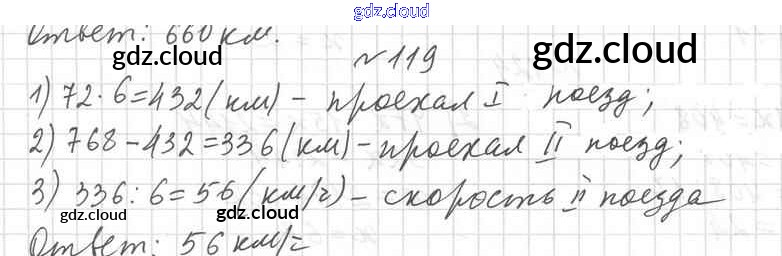 gdz.cloud
Ответ: 660 км.
gdz.cloud
gdz.cloud
№119
1) 72·6=432(км) – проехал I поезд;
2) 768-432=336(км)-проехал II поезд;
3) 336:6=56(км/ч)- скорость II поезда
gdz.cloud
gdz.cloud
gdz.cloud
Ответ: 56 км/ч